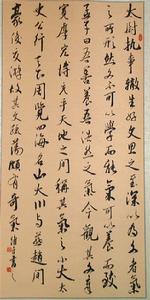 太尉執事轍生好文思之至深以為文者氣
之所形然文不可以學而能氣可以養而致
孟子曰吾善養吾浩然之氣今觀其文章
寬厚宏博充乎天地之間稱其氣之小大太
史公行天下周覽四海名山大川與燕趙間
豪俊交游故其文疏蕩頗有奇氣
書